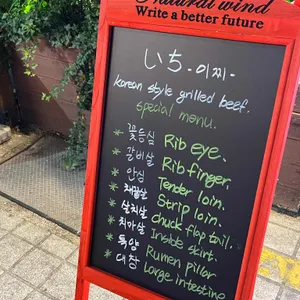 Natural wind
Write a better future
いち -이찌-
korean style grilled beef.
special menu.
* 꽃등심 Rib eye.
* 갈비살 Rib finger.
* 안심 Tender loin.
* 채끝살 Strip loin.
* 살치살 chuck flap tail.
* 치마살 Inside skirt.
* 특양 Rumen pillar
* 대창 Large intestine